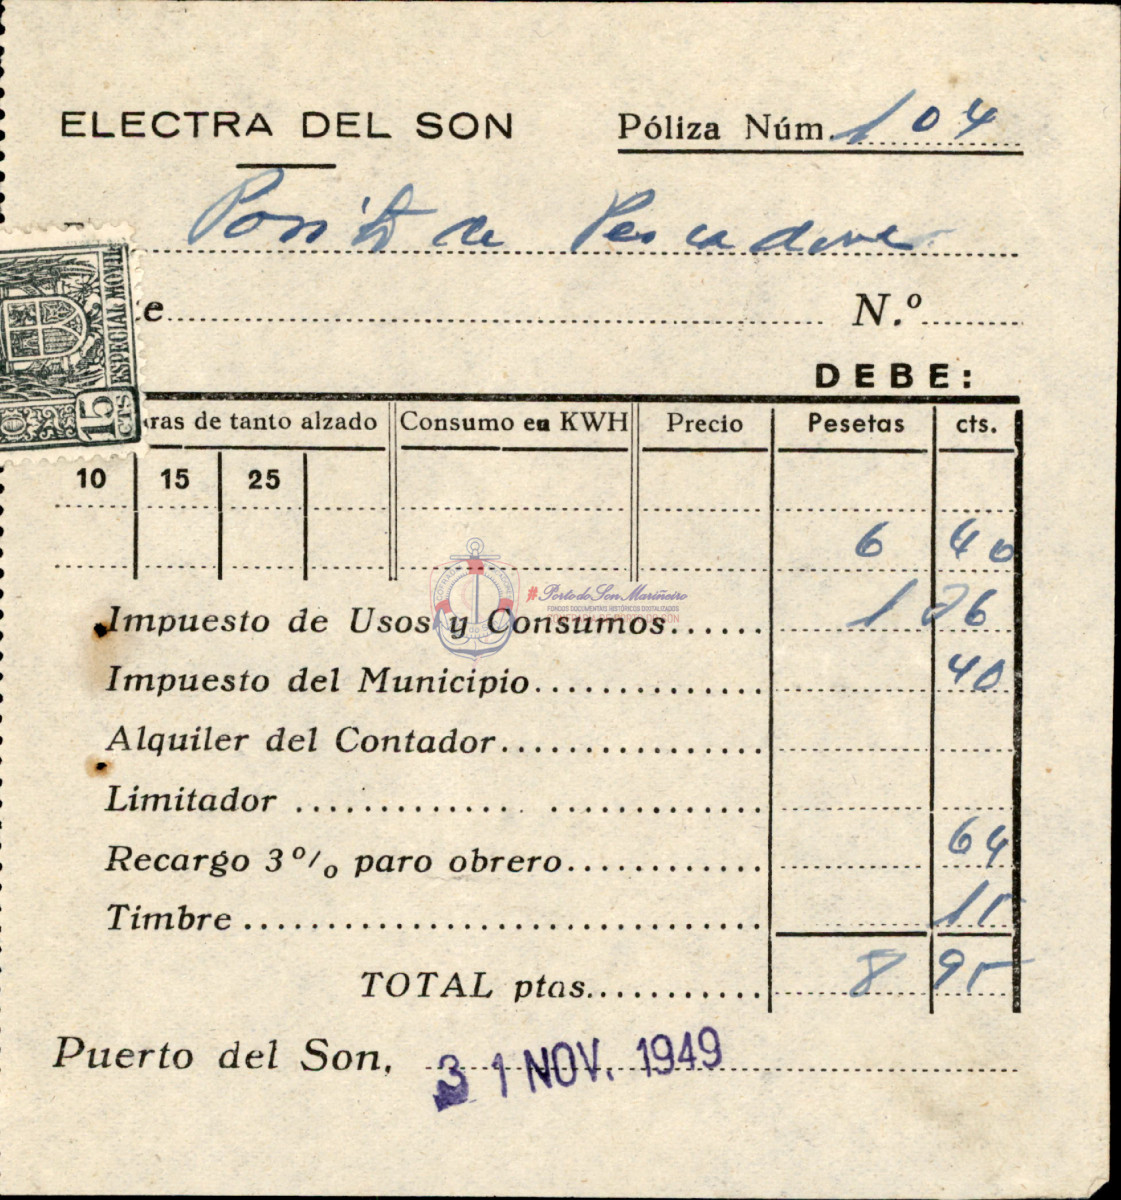 ELECTRA DEL SON
Póliza Núm. 104
Posito de Pescadores
e N.º
DEBE:
ras de tanto alzado Consumo en KWH Precio Pesetas cts.
10 15 25
6 40
Impuesto de Usos y Consumos 1 26
Impuesto del Municipio 40
Alquiler del Contador
Limitador
Recargo 3% paro obrero 64
Timbre 15
TOTAL ptas. 8 95
Puerto del Son, 31 NOV. 1949
ESPECIAL MOVIL
15 CTS
#Porto do Son Mariñeiro
FONDOS DOCUMENTAIS HISTÓRICOS DIGITALIZADOS